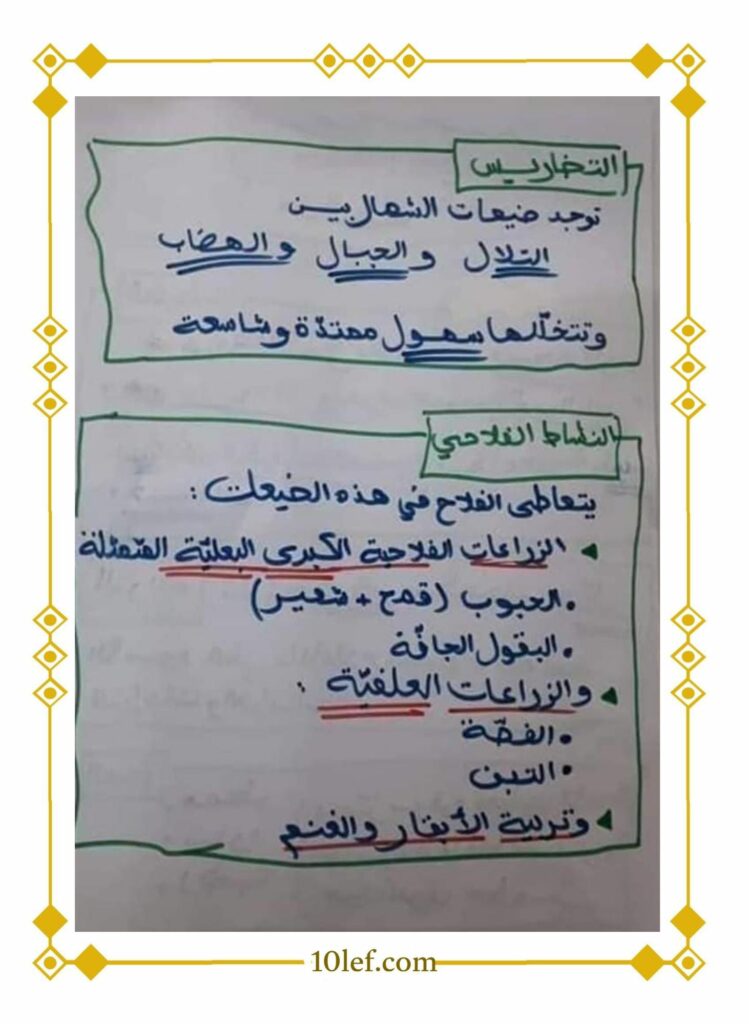 التضاريس
توجد ضيعات الشمال بين
التلال و الجبال و الهضاب
وتتخلّلها سهول ممتدّة وشاسعة
النشاط الفلاحي
يتعاطى الفلاح في هذه الضيعات :
الزراعات الفلاحية الكبرى البعليّة المتمثلة
• الحبوب (قمح + شعير)
• البقول الجافّة
والزراعات العلفيّة :
• الفصّة
• التبن
وتربية الأبقار والغنم
10lef.com